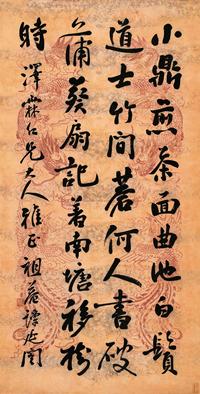 小鼎煎茶面曲池白鬚
道士竹間碁何人書破
蒲葵扇記著南塘移樹
時 澤霖仁兄大人雅正 祖菴譚延闓